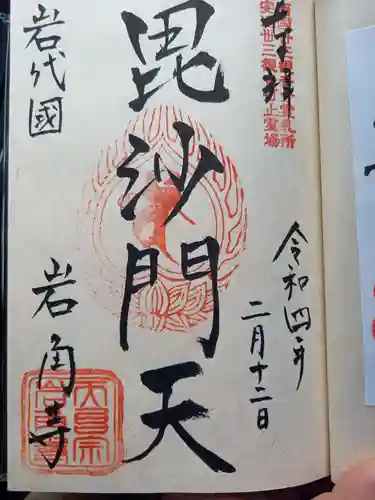 奉拝
令和四年
二月十二日
毘沙門天
岩代國
岩角寺